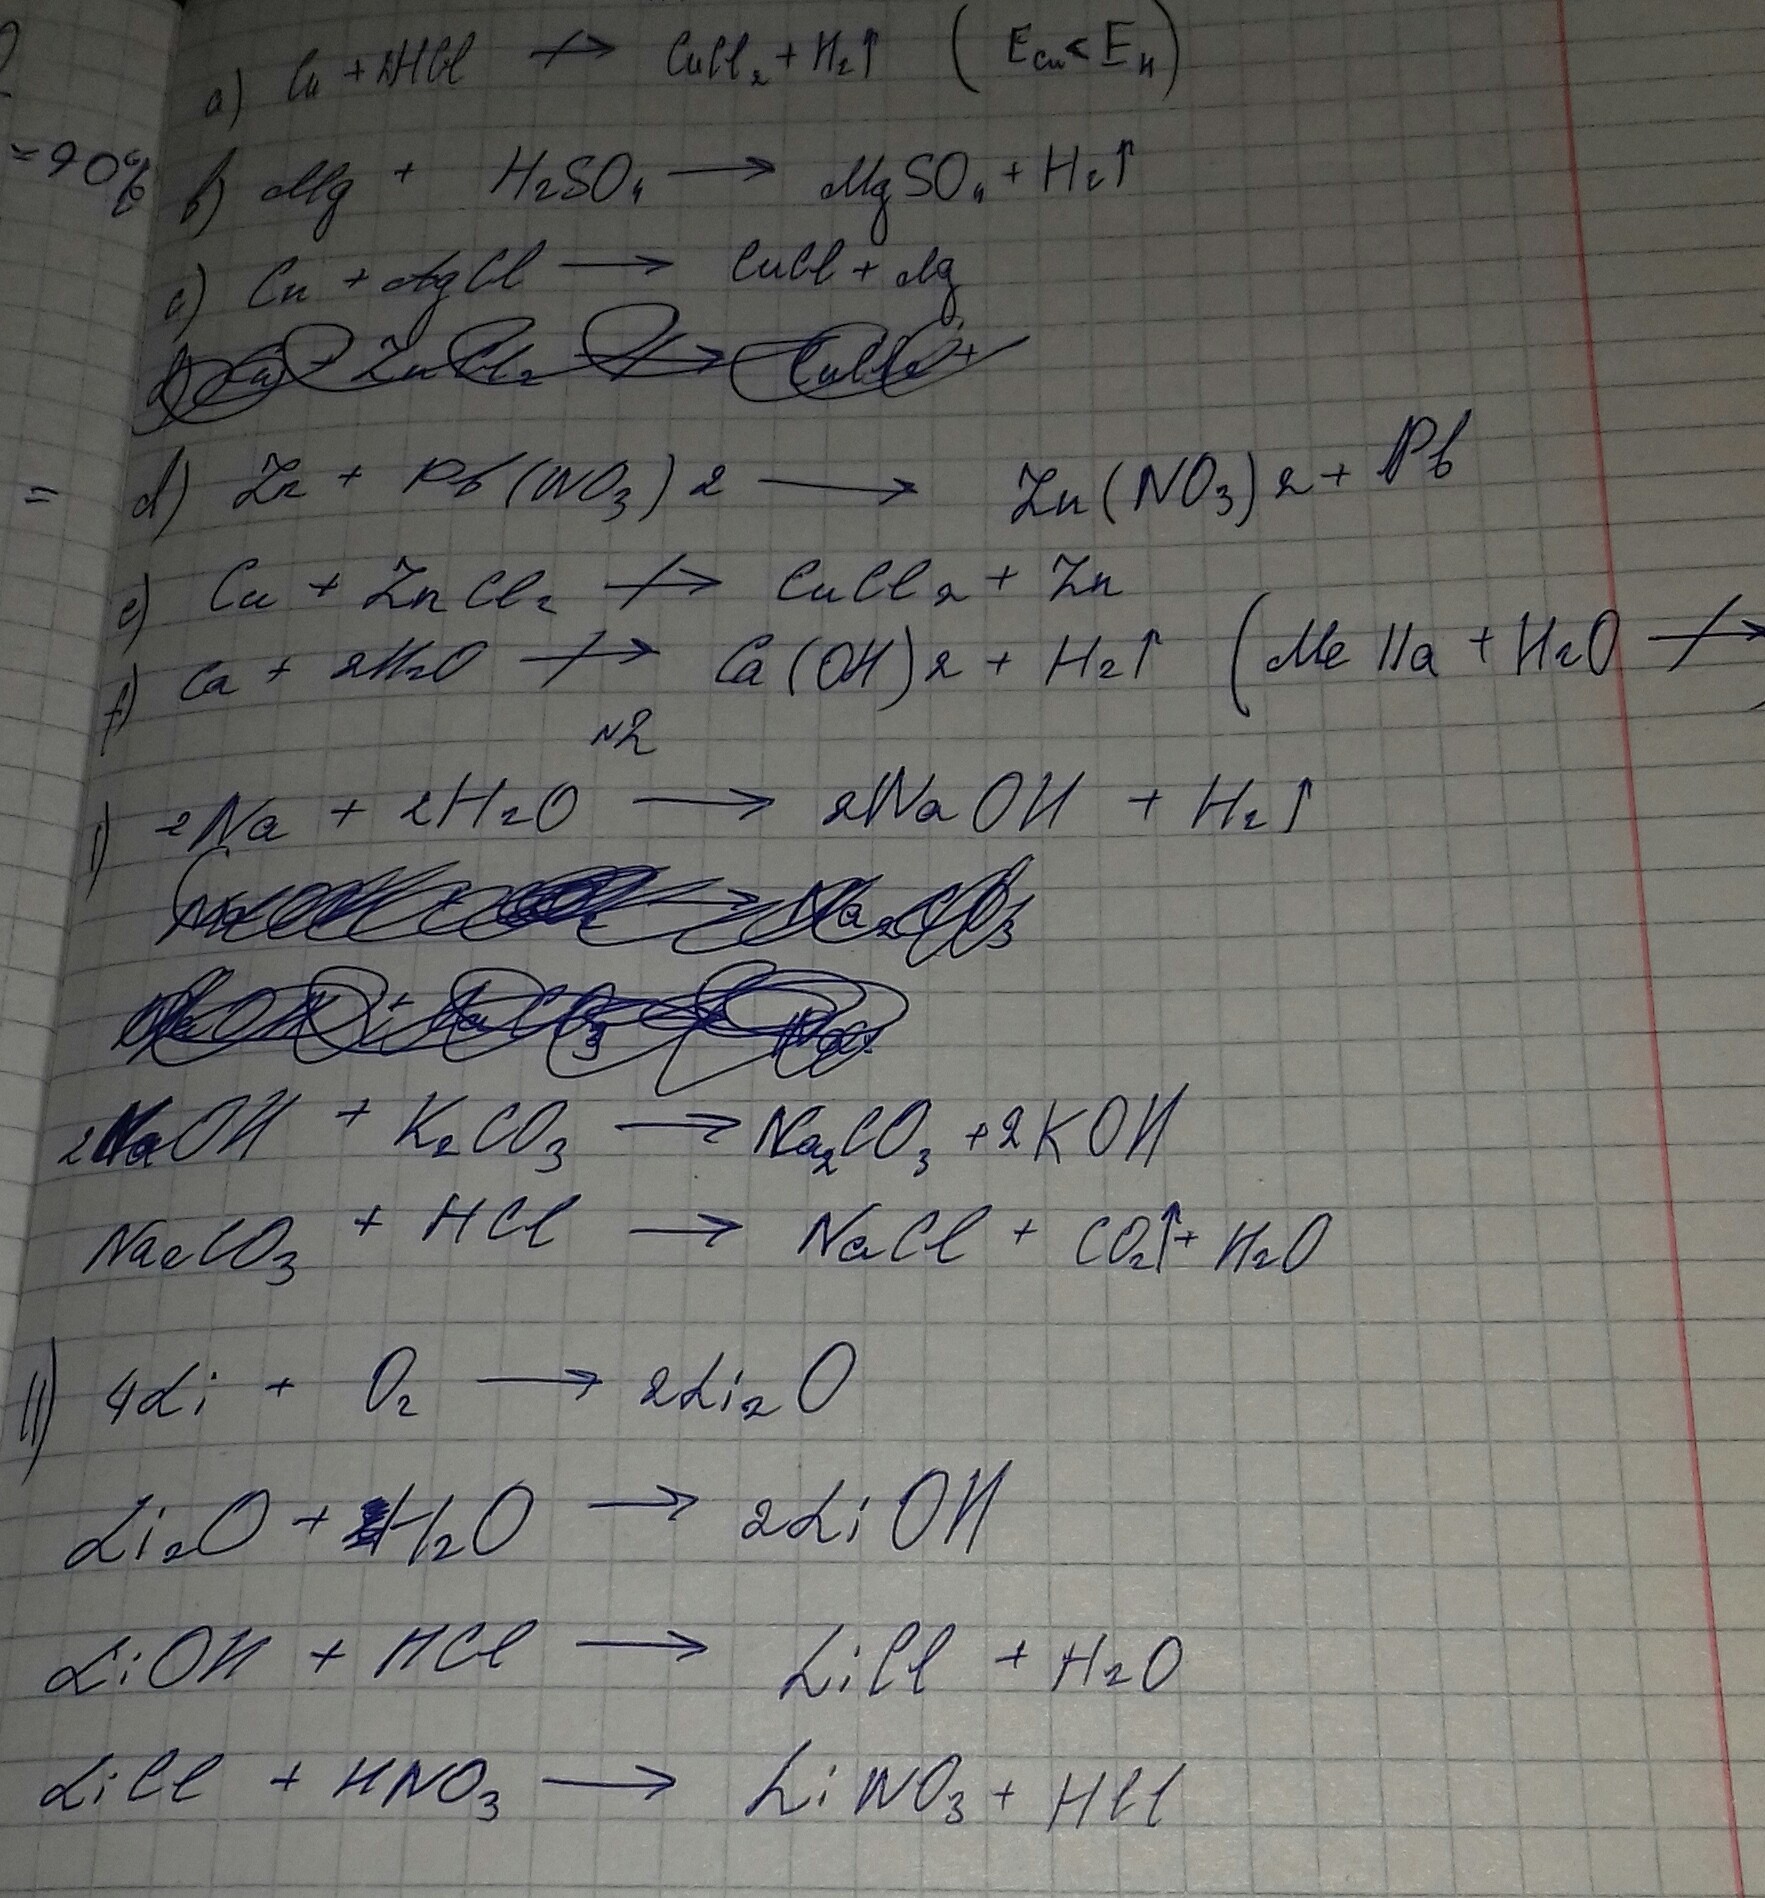 a) Cu + HCl ↛ CuCl₂ + H₂↑ (E_Cu < E_H)
=90%
b) Mg + H₂SO₄ → MgSO₄ + H₂↑
c) Cu + AgCl → CuCl + Ag
=
d) Zn + Pb(NO₃)₂ → Zn(NO₃)₂ + Pb
e) Cu + ZnCl₂ ↛ CuCl₂ + Zn
f) Ca + 2H₂O ↛ Ca(OH)₂ + H₂↑ (Me IIa + H₂O ↛)
N2
I) 2Na + 2H₂O → 2NaOH + H₂↑
2NaOH + K₂CO₃ → Na₂CO₃ + 2KOH
Na₂CO₃ + HCl → NaCl + CO₂↑ + H₂O
II) 4Li + O₂ → 2Li₂O
Li₂O + H₂O → 2LiOH
LiOH + HCl → LiCl + H₂O
LiCl + HNO₃ → LiNO₃ + HCl